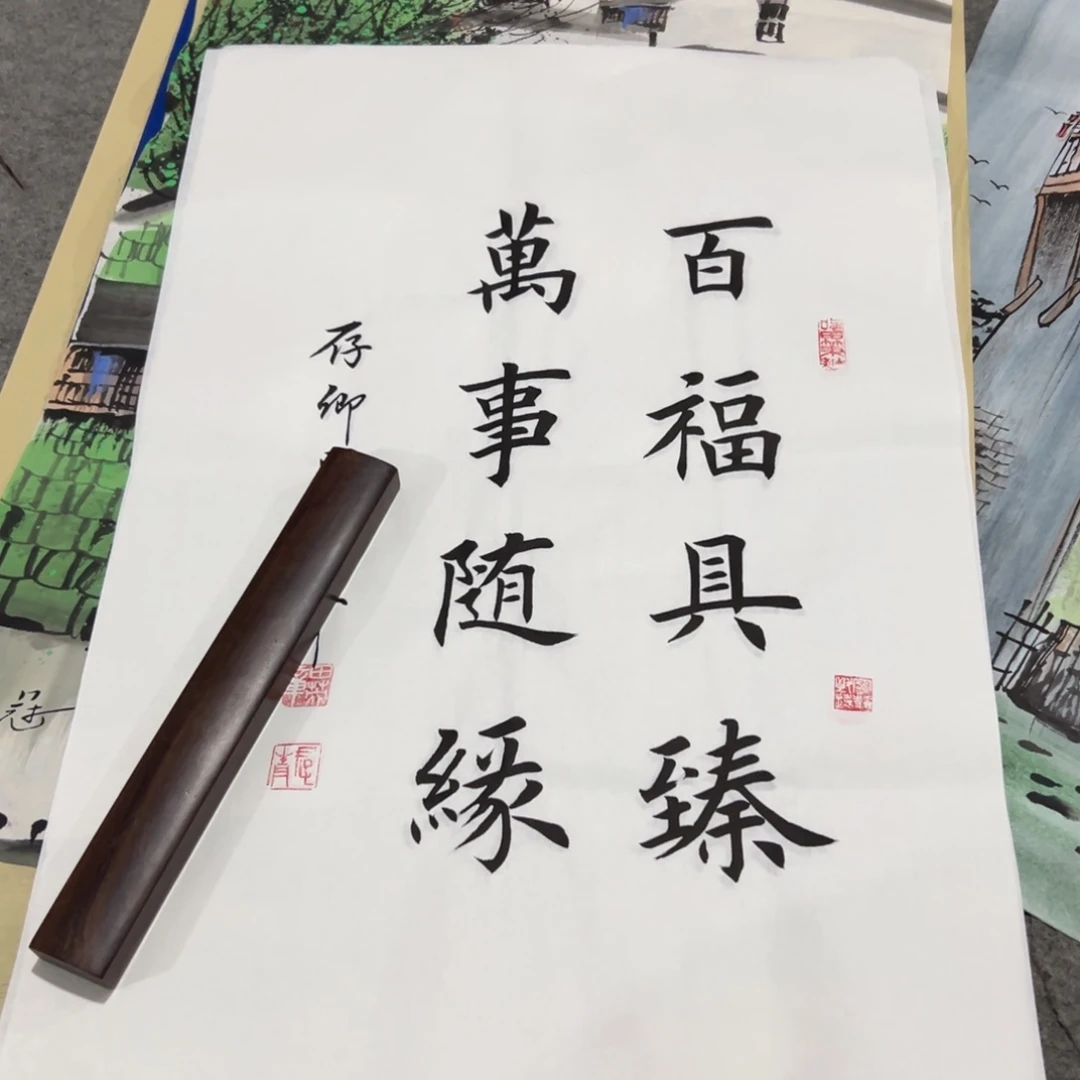 百福具臻
萬事随緣
存卿